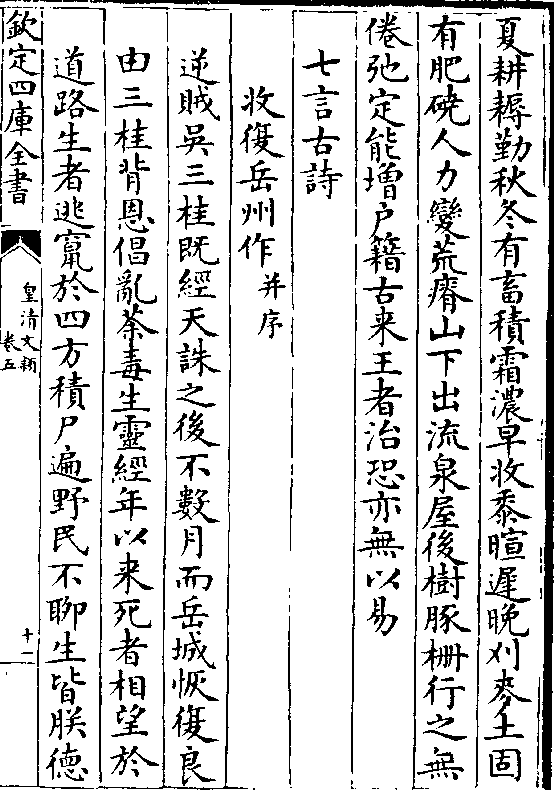 夏耕耨勤秋冬有畜積霜濃早收黍暄遲晚刈麥土固
有肥磽人力變荒瘠山下出流泉屋後樹豚柵行之無
倦弛定能增户籍古来王者治恐亦無以易
七言古詩
收復岳州作并序
逆賊吳三桂既經天誅之後不數月而岳城恢復良
由三桂背恩倡亂荼毒生靈經年以来死者相望於
道路生者逃竄於四方積尸遍野民不聊生皆朕德
欽定四庫全書
皇清文穎
卷五
十一